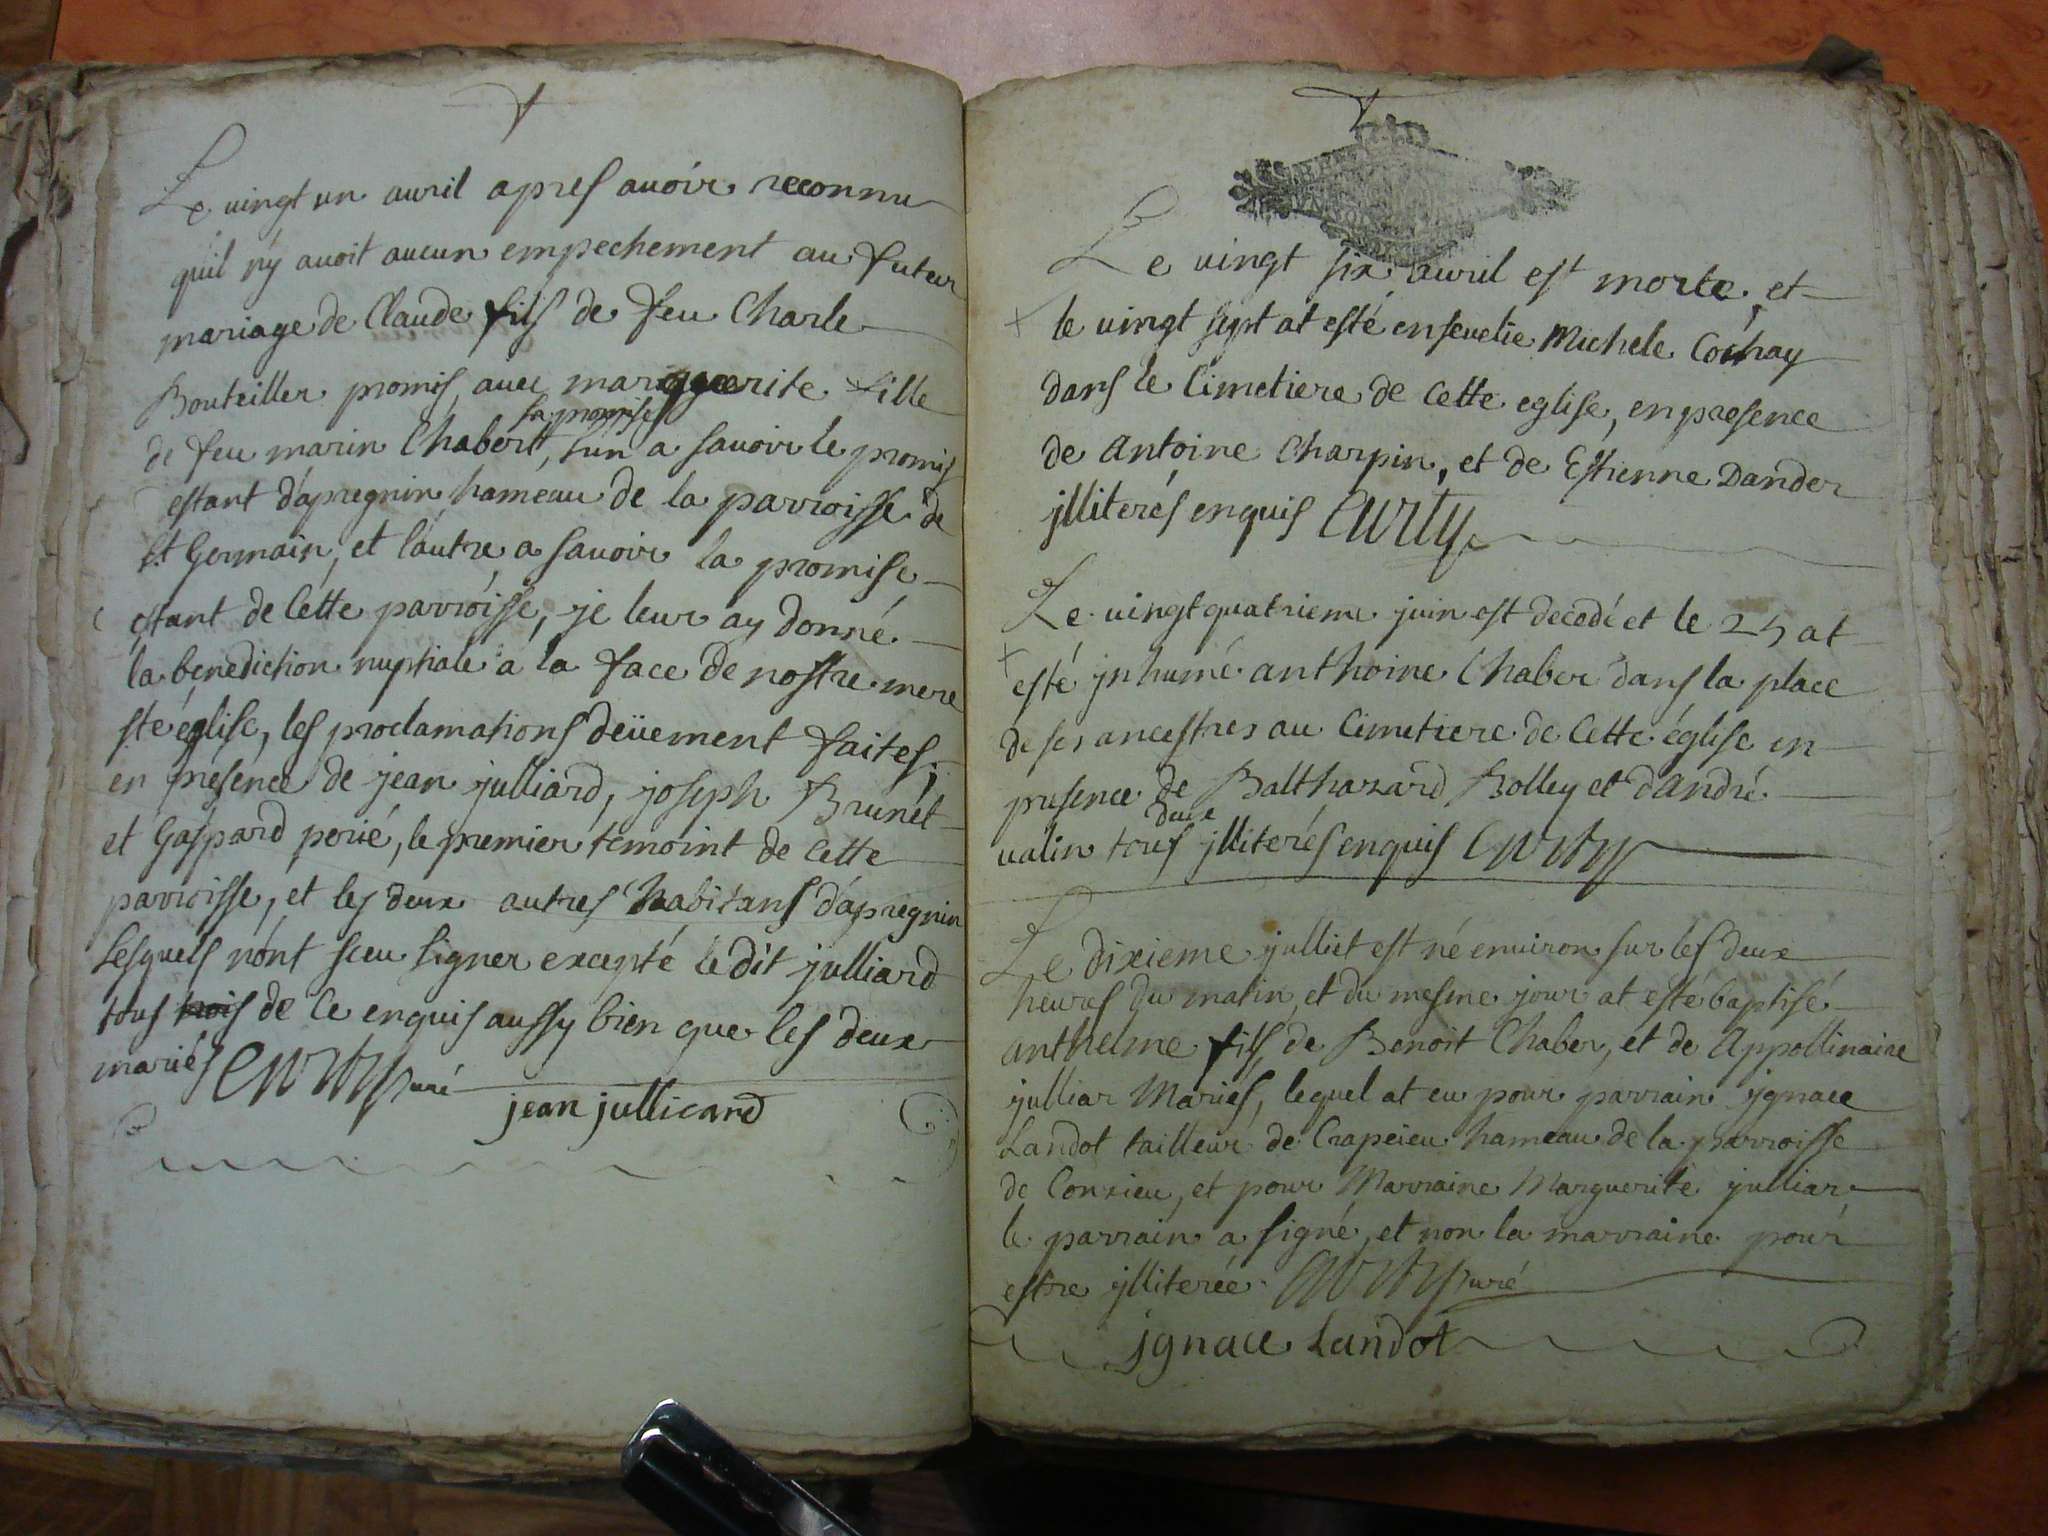 Le vingt un avril apres avoir reconnu
quil n'y avoit aucun empechement au futeur
mariage de Claude fils de feu Charle
Bouteiller promis, avec marguerite fille
sa promise
de feu marin Chabert, l'un a savoir le promis
estant d'apregnin hameau de la parroisse de
st Germain, et l'autre a savoir la promise
estant de cétte parroisse, je leur ay donné
la benediction nuptiale a la face de nostre mere
ste église, les proclamations deüement faites,
en présénce de jean julliard, joseph Brunét
et Gaspard poiié, le premier témoint de cette
parroisse, et les deux autres habitans d'apregnin
Lesquels n'ont sceu signer excepté le dit julliard
tous trois de ce enquis aussy bien que les deux
mariés Curty curé
jean jullieard
Le vingt six avril est morte, et
le vingt sept at esté ensevelie Michele Cochay
dans le Cimetiere de cette eglise, en presence
de Antoine Charpin, et de Estienne Dander
jlliterés enquis Curty
Le vingtquatrieme juin est decedé et le 25 at
esté jnhumé anthoine Chaber dans la place
de ses ancestres au Cimetiere de cette église en
presence de Balthazard Bolley et d'André
deux
valin tous jlliterés enquis Curty
Le dixieme julliet est né environ sur les deux
heures du matin, et du mesme jour at esté baptisé
anthelme fils de Benoit Chaber, et de Appollinaire
julliar Mariés, lequel at eu pour parrain ygnace
Landot tailleur de Crapeieu hameau de la parroisse
de Conzieu, et pour Marraine Marguerite julliar
le parrain a signé, et non la marraine pour
estre ylliterée. Curty curé
jgnace Landot